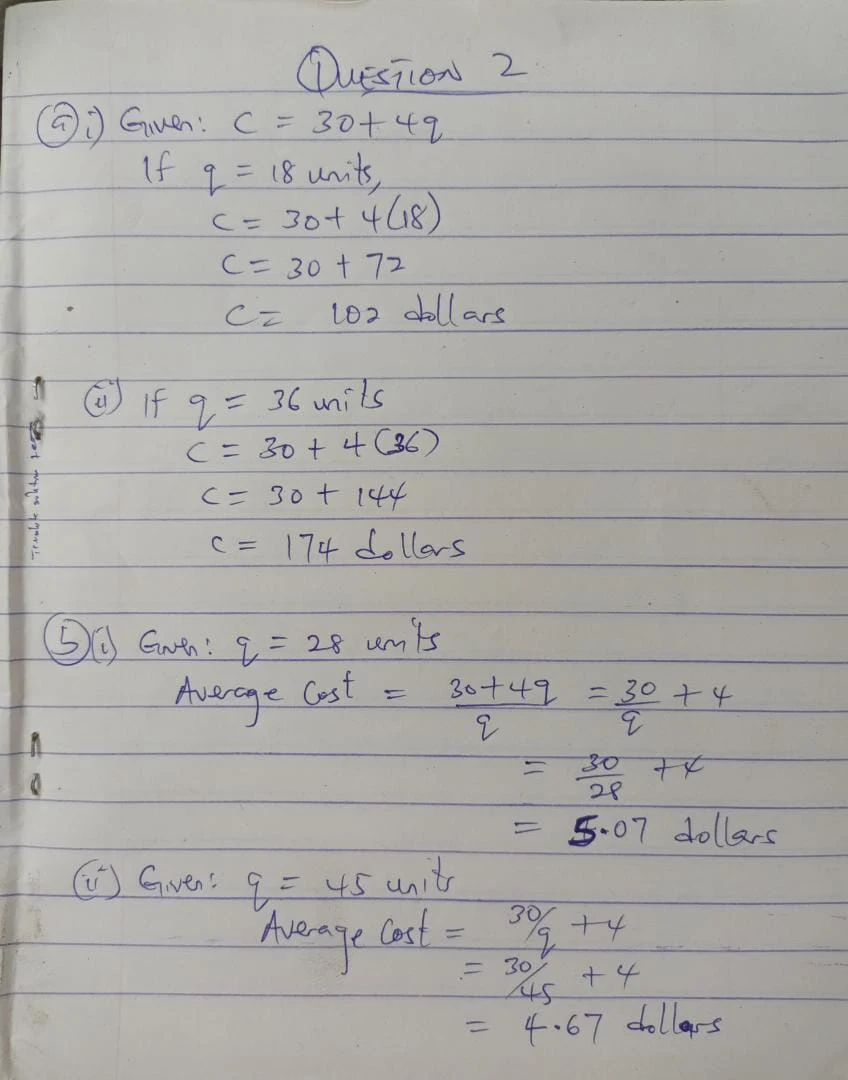 QUESTION 2
a i) Given: C = 30 + 4q
If q = 18 units,
C = 30 + 4(18)
C = 30 + 72
C = 102 dollars
ii) If q = 36 units
C = 30 + 4(36)
C = 30 + 144
C = 174 dollars
b (i) Given: q = 28 units
Average Cost = (30+4q)/q = 30/q + 4
= 30/28 + 4
= 5.07 dollars
(ii) Given: q = 45 units
Average Cost = 30/q + 4
= 30/45 + 4
= 4.67 dollars